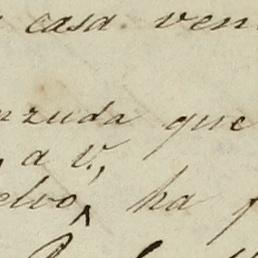 casa ven
nzuda que
, a v,
elvo, ha